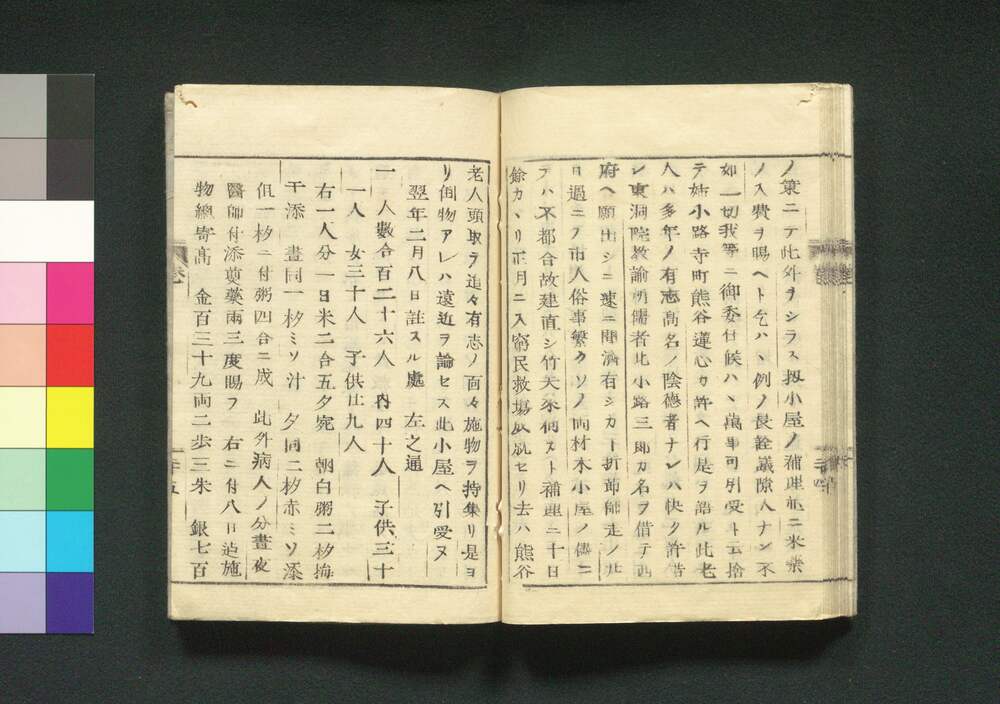 ノ策ニテ此外ヲシラス扨小屋ノ補理並ニ米薬
ノ入費ヲ賜ヘト乞ハヽ例ノ長詮議隙入ナン不
如一切我等ニ御委任候ハヽ萬事可引受ト云捨
テ姉小路寺町熊谷蓮心カ許ヘ行是ヲ語ル此老
人ハ多年ノ有志高名ノ陰徳者ナレハ快ク許諾
シ東洞院教諭所儒者北小路三郎カ名ヲ借テ西
府ヘ願出シニ速ニ聞済有シカト折節師走ノ廿
日過ニテ市人俗事繁クソノ両材木小屋ノ儘ニ
テハ不都合故建直シ竹天米俵スト補理ニ十日
餘カヽリ正月ニ入窮民救場成就セリ去ハ熊谷
老人頭取テ追々有志ノ面々施物ヲ持集リ是ヨ
リ何物アレハ遠近ヲ論セス此小屋ヘ引受ヌ
翌年二月八日註スル處　左之通
一　人數合百二十六人　内四十人　子供三十
一人　女三十人　子供廿九人
右一人分一日米二合五夕宛　朝白粥二杓梅
干添　晝同一杓ミソ汁　夕同二杓赤ミソ添
但一杓ニ付粥四合ニ成　此外病人ノ分晝夜
醫師付添煎藥両三度賜フ　右ニ付八日迠施
物總寄高　金百三十九両二歩三朱　銀七百